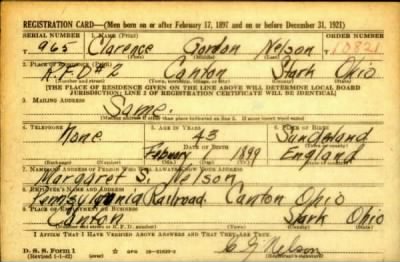 REGISTRATION CARD—(Men born on or after February 17, 1897 and on or before December 31, 1921)
SERIAL NUMBER 1. NAME (Print) ORDER NUMBER
T 965 Clarence Gordon Nelson 10821
(First) (Middle) (Last)
2. PLACE OF RESIDENCE (Print)
R.F.D #2 Canton Stark Ohio
(Number and street) (Town, township, village, or city) (County) (State)
[THE PLACE OF RESIDENCE GIVEN ON THE LINE ABOVE WILL DETERMINE LOCAL BOARD
JURISDICTION; LINE 2 OF REGISTRATION CERTIFICATE WILL BE IDENTICAL]
3. MAILING ADDRESS
Same.
[Mailing address if other than place indicated on line 2. If same insert word same]
4. TELEPHONE 5. AGE IN YEARS 6. PLACE OF BIRTH
None 43 Sunderland
DATE OF BIRTH (Town or county)
February 1899 England
(Exchange) (Number) (Mo.) (Day) (Yr.) (State or country)
7. NAME AND ADDRESS OF PERSON WHO WILL ALWAYS KNOW YOUR ADDRESS
Margaret S. Nelson
8. EMPLOYER'S NAME AND ADDRESS
Pennsylvania Railroad Canton Ohio
9. PLACE OF EMPLOYMENT OR BUSINESS
Canton Stark Ohio
(Number and street or R. F. D. number) (Town) (County) (State)
I AFFIRM THAT I HAVE VERIFIED ABOVE ANSWERS AND THAT THEY ARE TRUE.
D. S. S. Form 1
(Revised 1-1-42) GPO 16—21630-2
C G Nelson